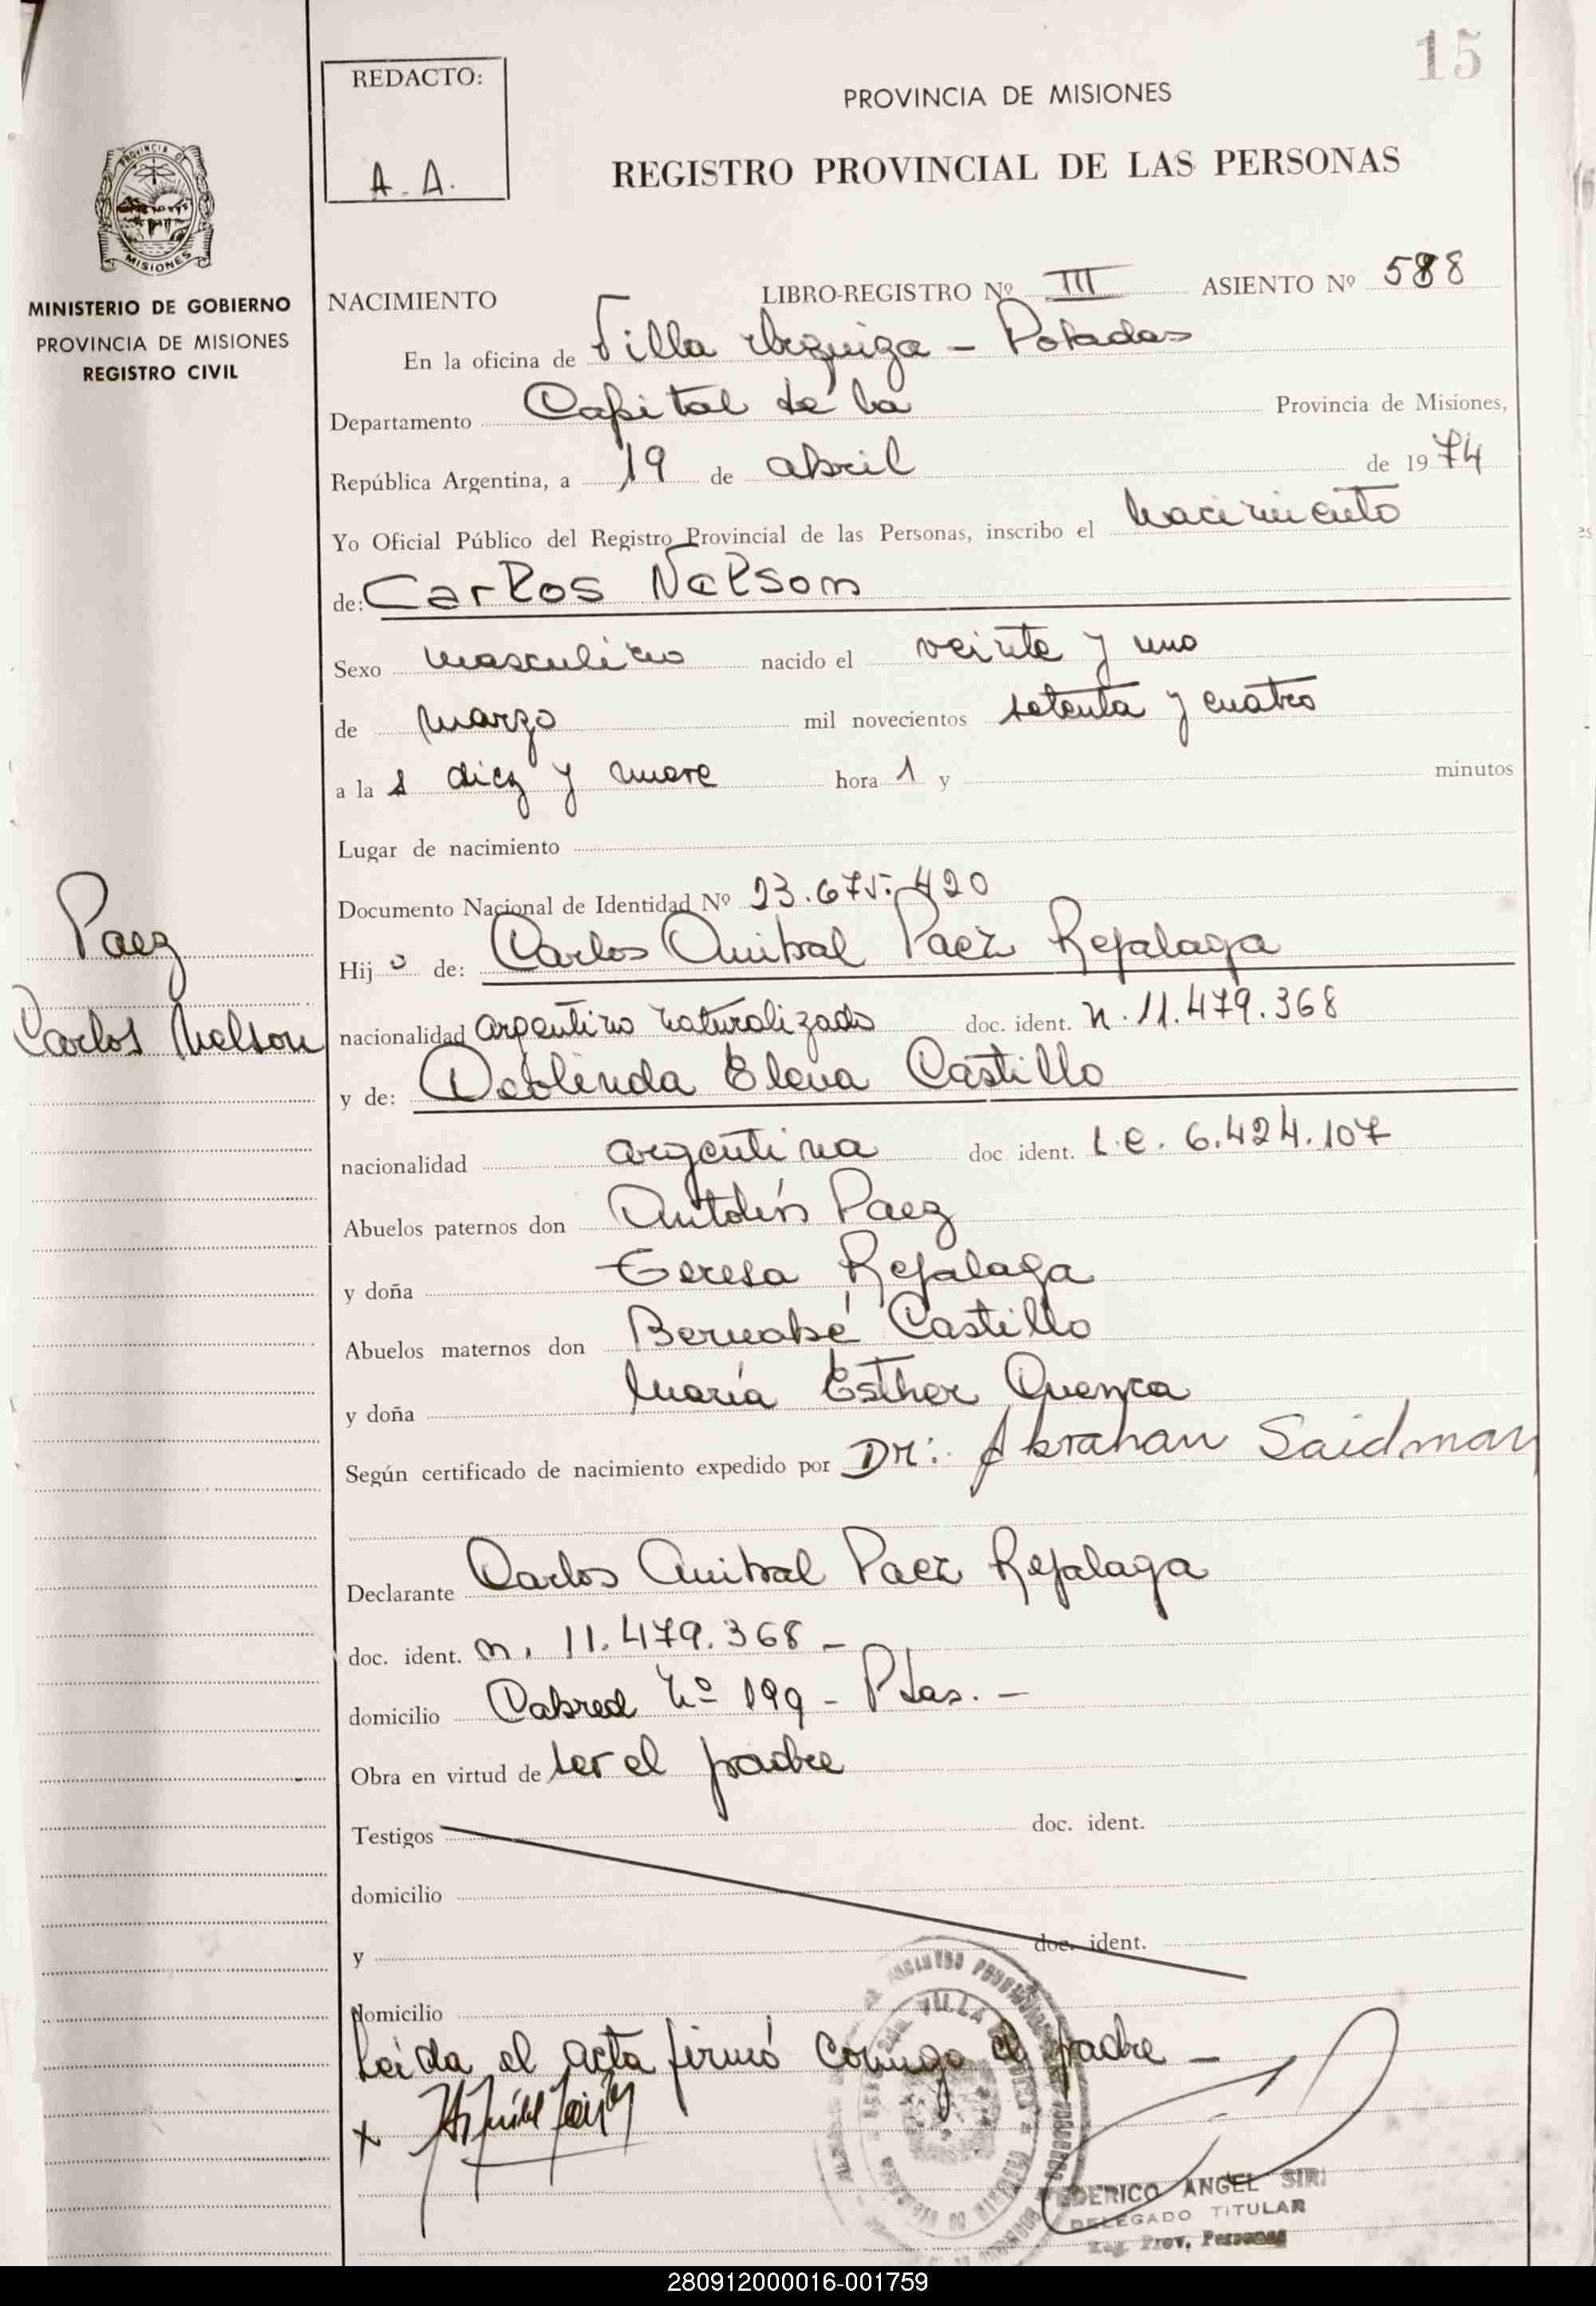 15
REDACTO:
A. A.
PROVINCIA DE MISIONES
REGISTRO PROVINCIAL DE LAS PERSONAS
PROVINCIA DE
MISIONES
MINISTERIO DE GOBIERNO
PROVINCIA DE MISIONES
REGISTRO CIVIL
NACIMIENTO LIBRO-REGISTRO Nº III ASIENTO Nº 588
En la oficina de Villa Urquiza - Posadas
Departamento Capital de la Provincia de Misiones,
República Argentina, a 19 de abril de 1974
Yo Oficial Público del Registro Provincial de las Personas, inscribo el Nacimiento
de: Carlos Nelson
Sexo masculino nacido el veinte y uno
de marzo mil novecientos setenta y cuatro
a la s diez y nueve hora s y minutos
Lugar de nacimiento
Documento Nacional de Identidad Nº 23.675.420
Hij o de: Carlos Anibal Paez Rejalaga
Paez
Carlos Nelson
nacionalidad argentino naturalizado doc. ident. n. 11.479.368
y de: Elena Castillo
nacionalidad argentina doc ident. L.C. 6.424.107
Abuelos paternos don Antolín Paez
y doña Teresa Rejalaga
Abuelos maternos don Bernabé Castillo
y doña María Esther Quenca
Según certificado de nacimiento expedido por Dr: Abrahan Saidman
Declarante Carlos Anibal Paez Rejalaga
doc. ident. n. 11.479.368 -
domicilio Cabred Nº 199 - Pdas. -
Obra en virtud de ser el padre
Testigos doc. ident.
domicilio
y doc. ident.
domicilio
Leída el acta firmó conmigo el padre -
x
VILLA
DERICO ANGEL SIRI
DELEGADO TITULAR
Reg. Prov. Personas
280912000016-001759